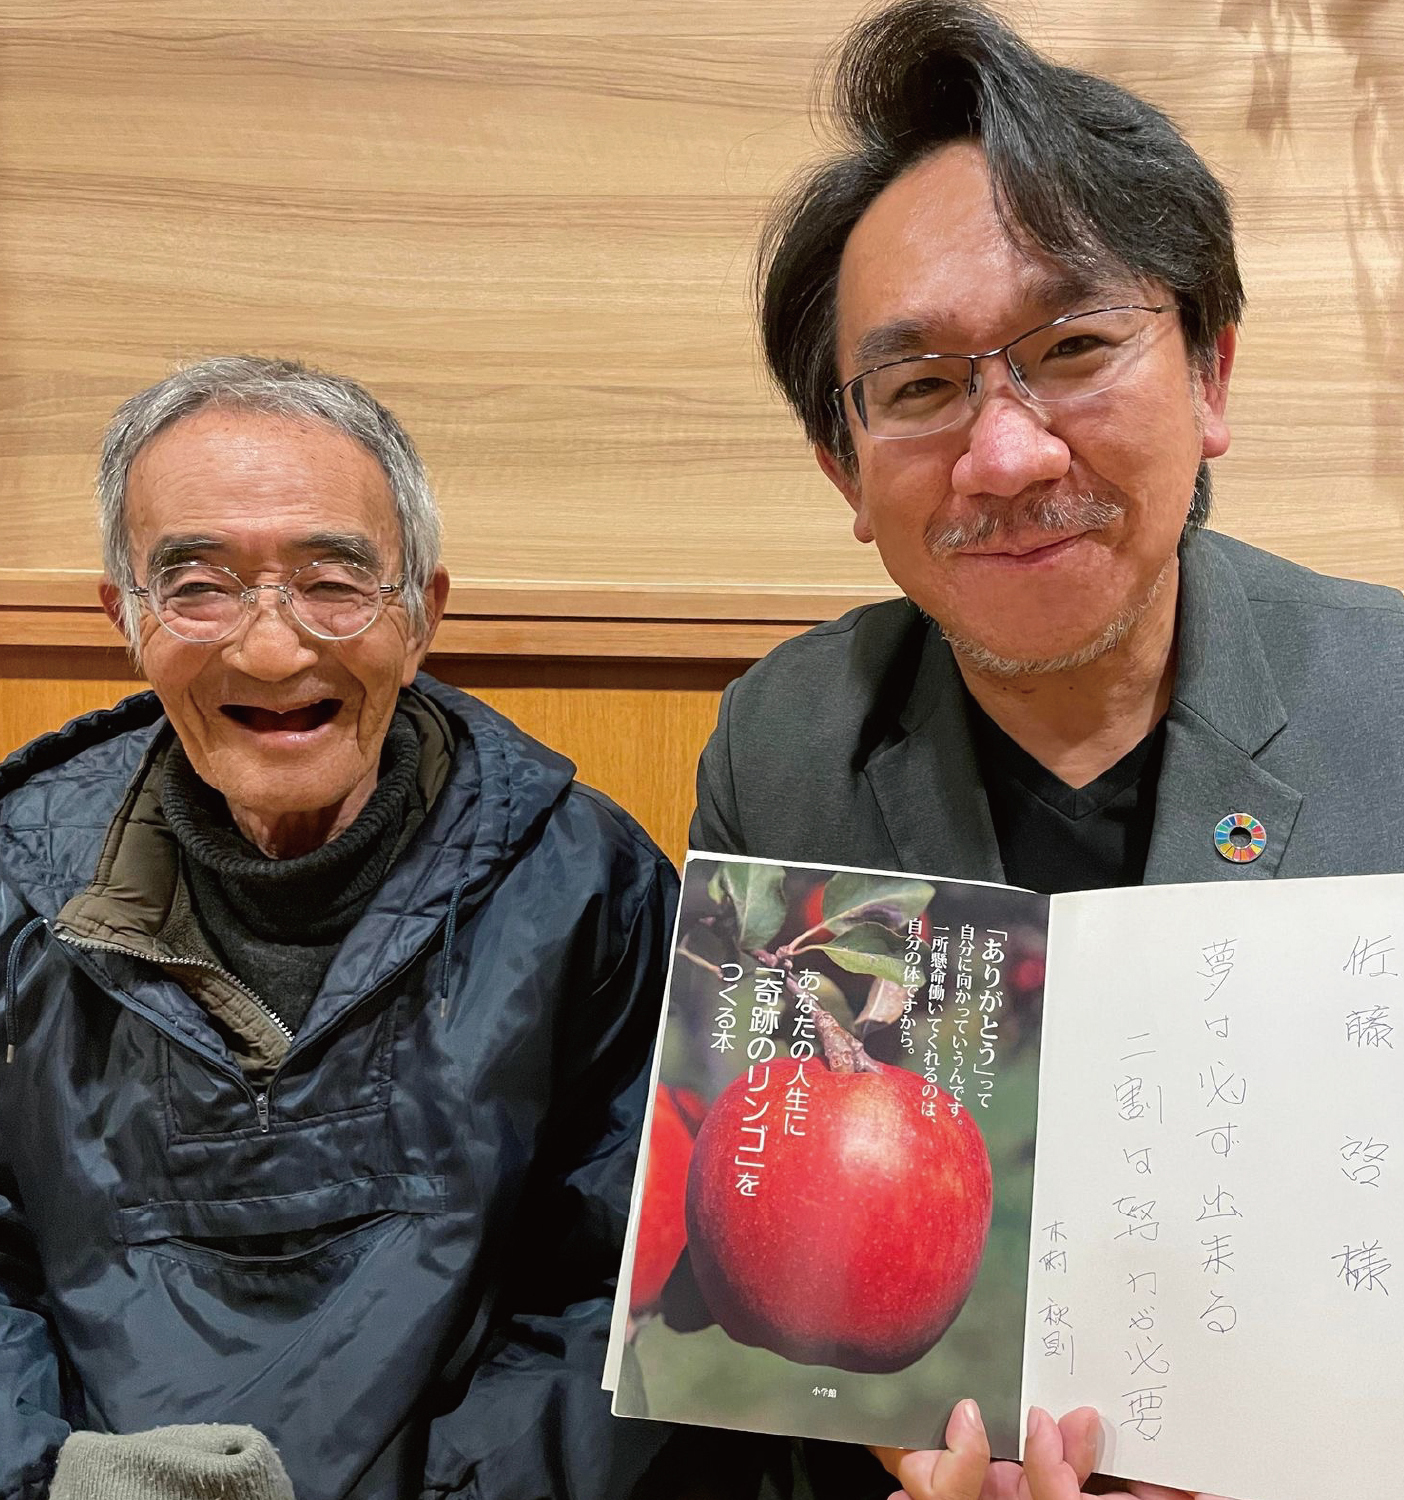 「ありがとう」って
自分に向かっていうんです。
一所懸命働いてくれるのは、
自分の体ですから。
あなたの人生に
「奇跡のリンゴ」を
つくる本
小学館
佐藤 啓様
夢は必ず出来る
二割は努力が必要
木村 秋則